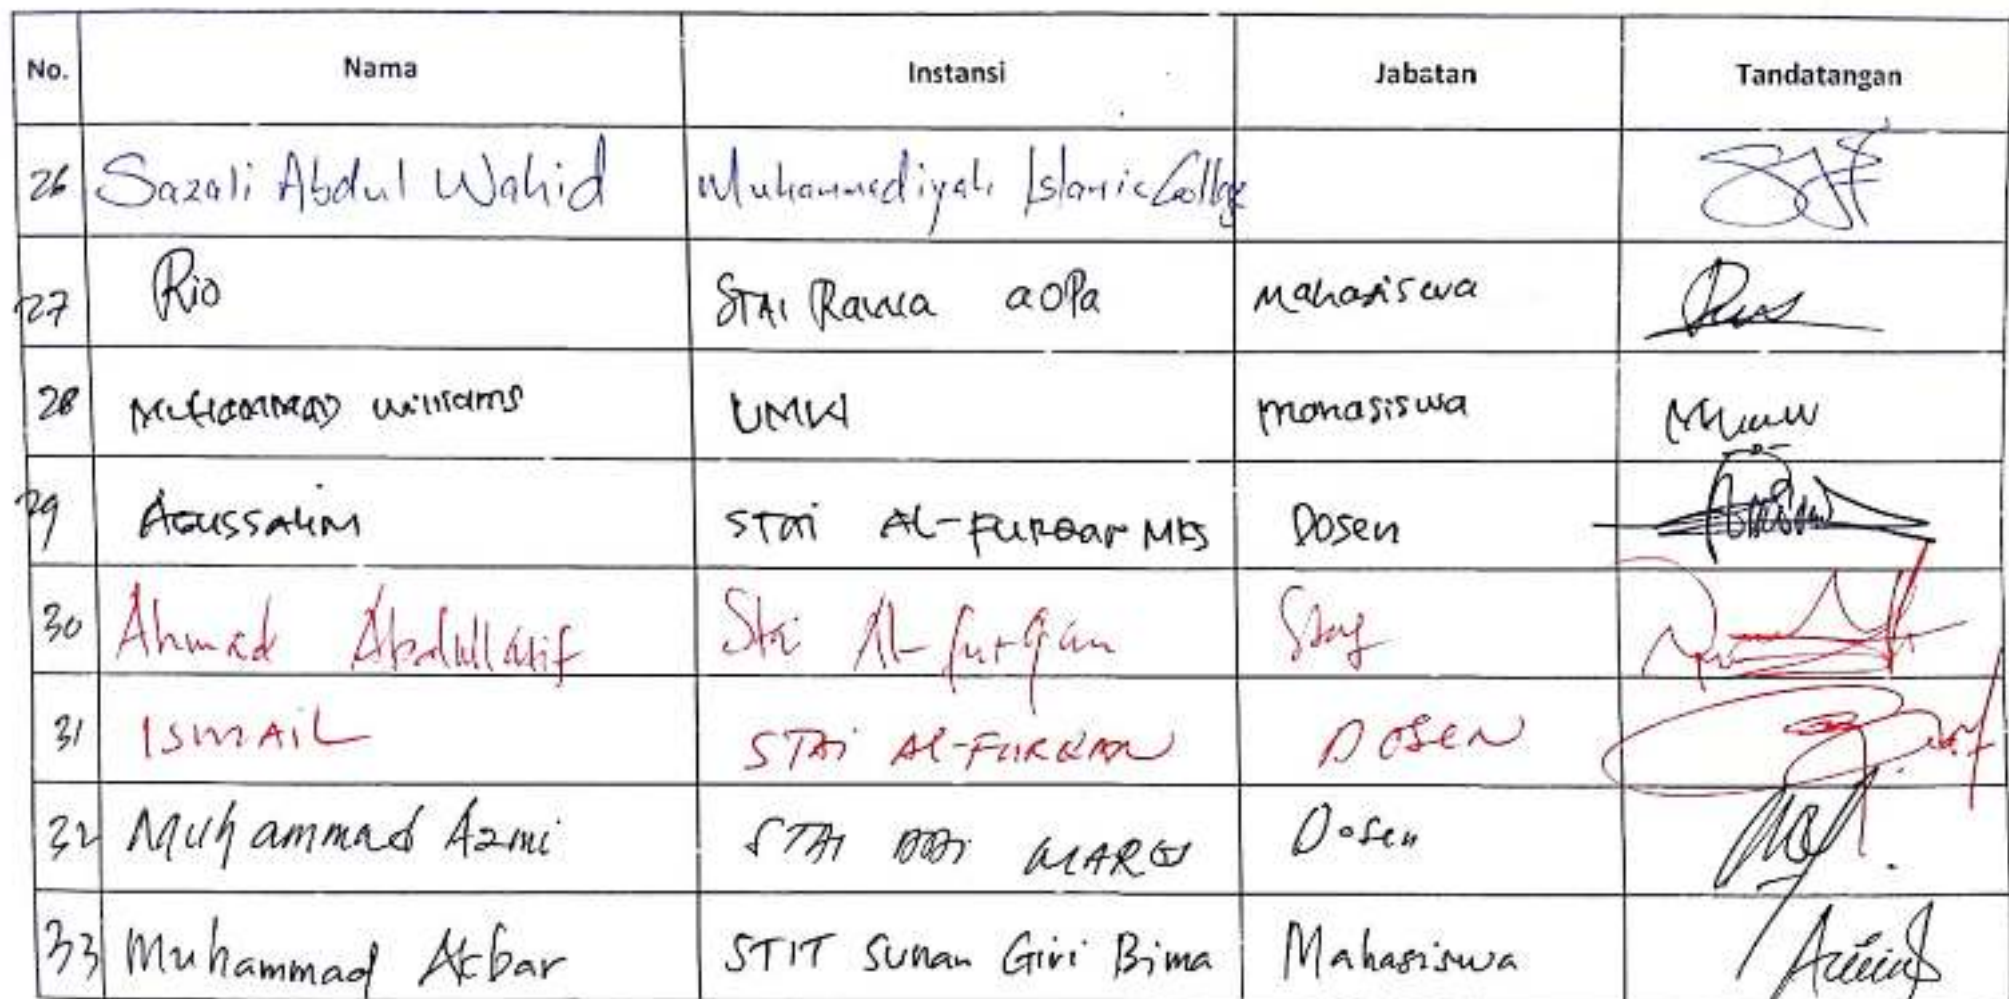 No. Nama Instansi Jabatan Tandatangan
26 Sazali Abdul Wahid Muhammadiyah Islamic College
27 Rio STAI Rawa aOPa Mahasiswa
28 MUHAMMAD Williams UMW mahasiswa
29 AGUSSALIM STAI AL-FURQAN MKS Dosen
30 Ahmad Abdullatif Stai Al-furqan Staf
31 ISMAIL STAI AL-FURQAN DOSEN
32 Muhammad Azmi STAI DDI Dosen
33 Muhammad Akbar STIT Sunan Giri Bima Mahasiswa